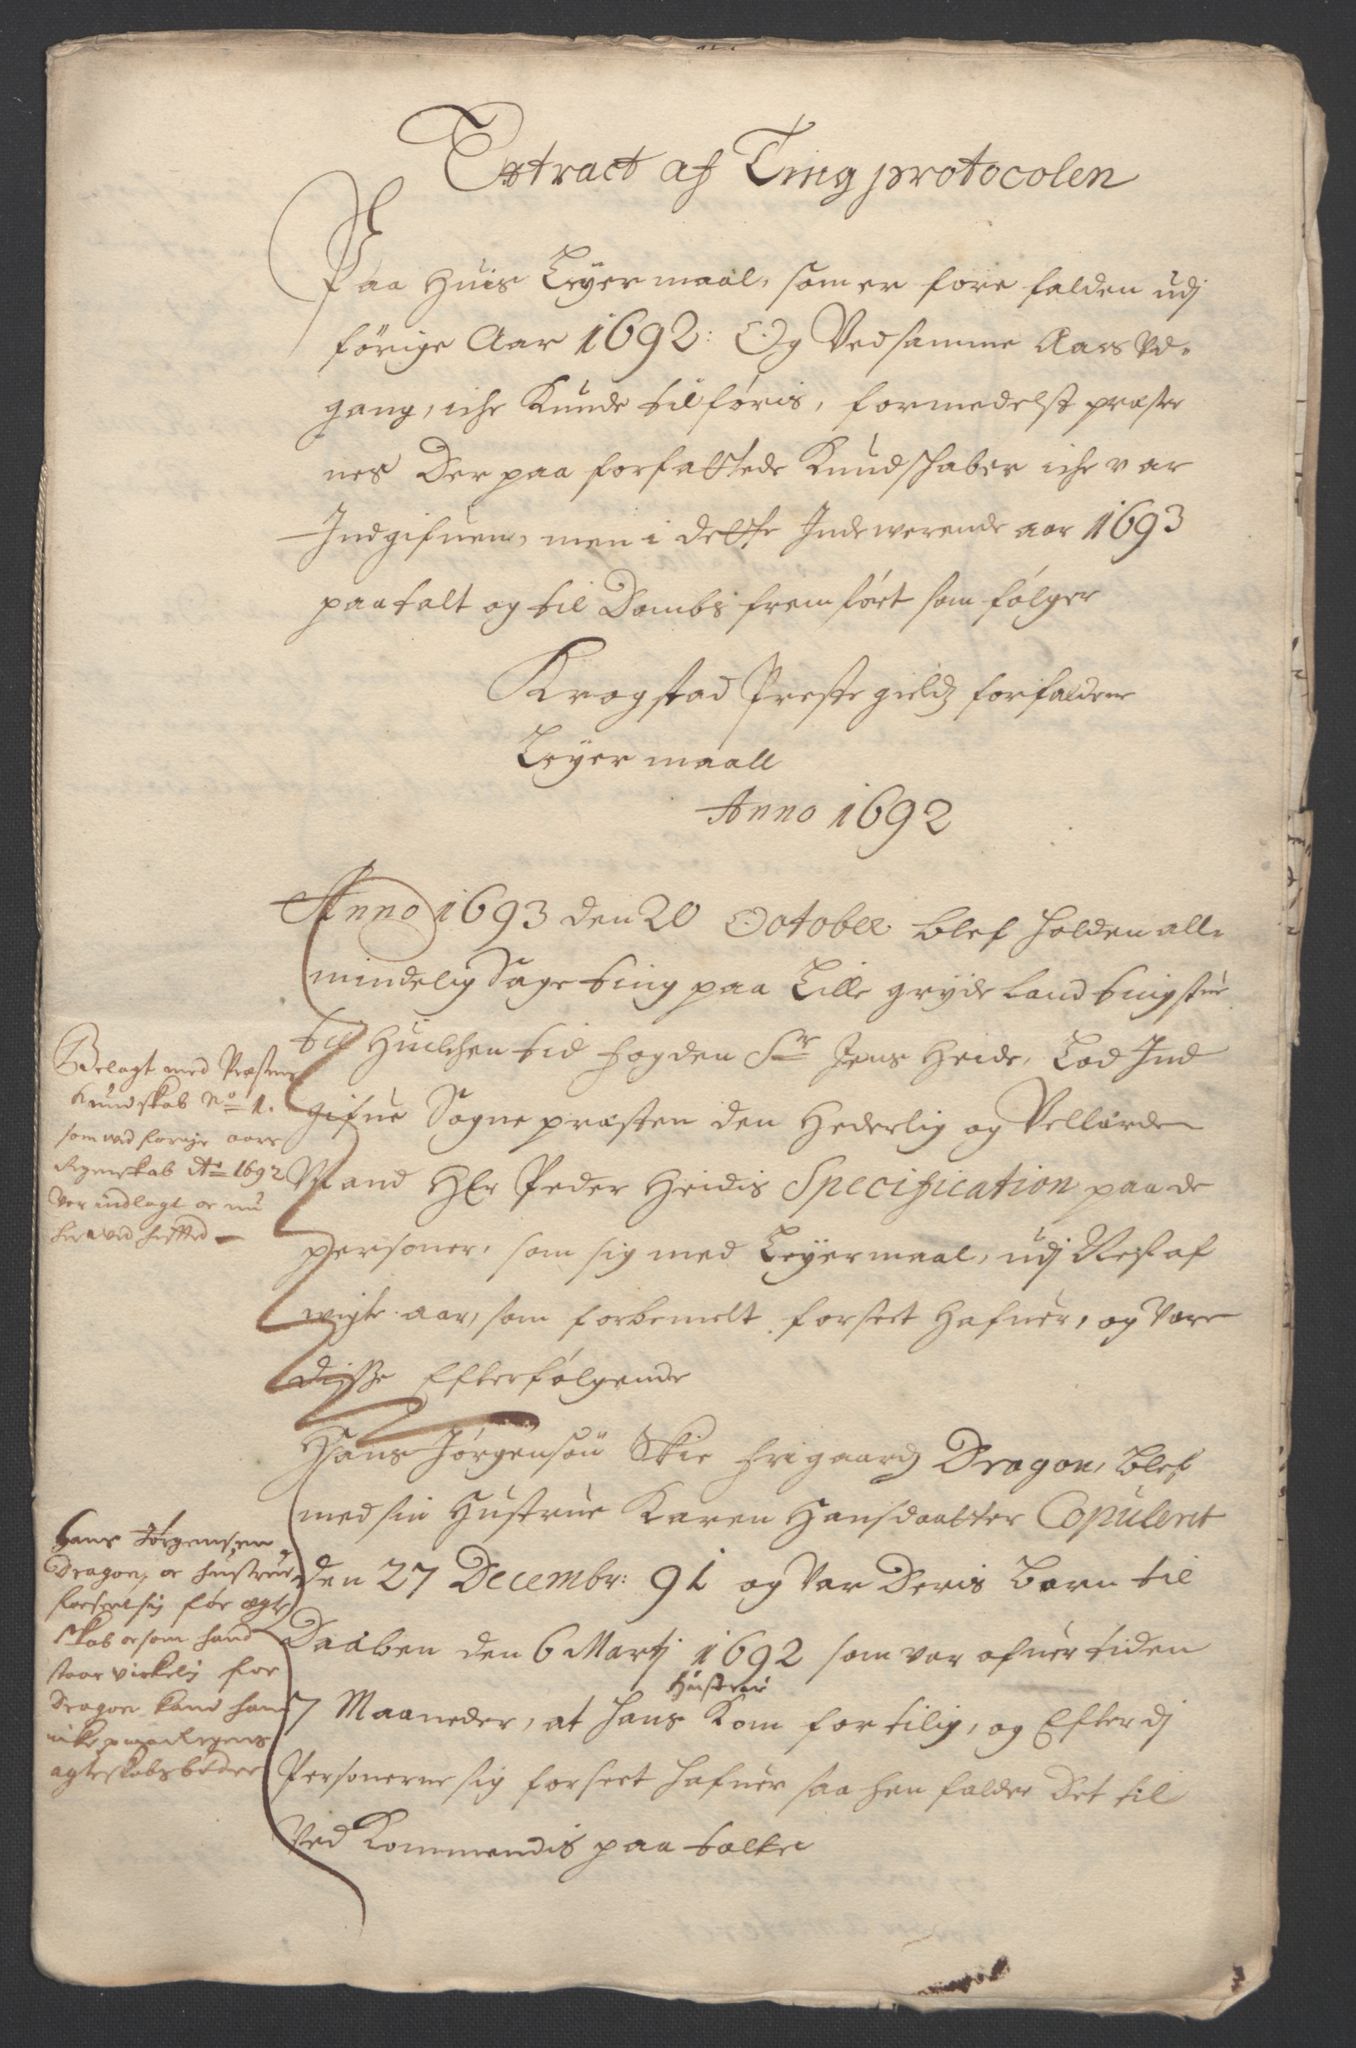 Extract af Ting protocolen
Paa Huis Leyermaal, som er fore falden udj
förige Aar 1692: Og Ved samme Aars Vd-
gang, iche Kunde tilföris, formedelst præster
nes Der paa forfattede Kundschaber iche var
Indgifuen, men i dette Indewerende aar 1693
paatalt og til Dombs fremfört som fölger
Krogstad Prestegield forfaldene
Leyermaall
Anno 1692
Anno 1693 den 20 October blef holden all-
mindelig Sage ting paa Lille gryde land tingstue
til Huilchen tid fogden Sr Jens Heide, Lod Ind
gifue Sogne præsten den Hederlig og Vellærde
Mand HEr Peder Heidis Specification paa de
personer, som sig med Leyermaal, udj Rest af
wigte aar, som forbemelt forseet Hafuer, og Vare
disse Efterfölgende
Belagt med Præstens
Kundskab No 1.
som ved forrige aars
Regenskab Ao 1692
Var indlagt oc nu
her ved hefted
Hans Jörgensön Skie frigaard Dragon, blef
med sin Hustrue Karen Hansdaatter Copulerit
den 27 Decembr: 91 og Var Deris barn til
Daaben den 6 Martj 1692 som var ofuer tiden
7 Maaneder, at hans Hustrue Kom for tilig, og Efterdj
Personerne sig forseet hafuer saa hen falder Det til
Ved Kommendis paa talte
Hans Jörgensen
Dragon, oc hustrue
forseet sig før ægte
skab oc som hand
staar virkelig for
Dragon kand hand
icke paa Regens
ægteskabs bøder